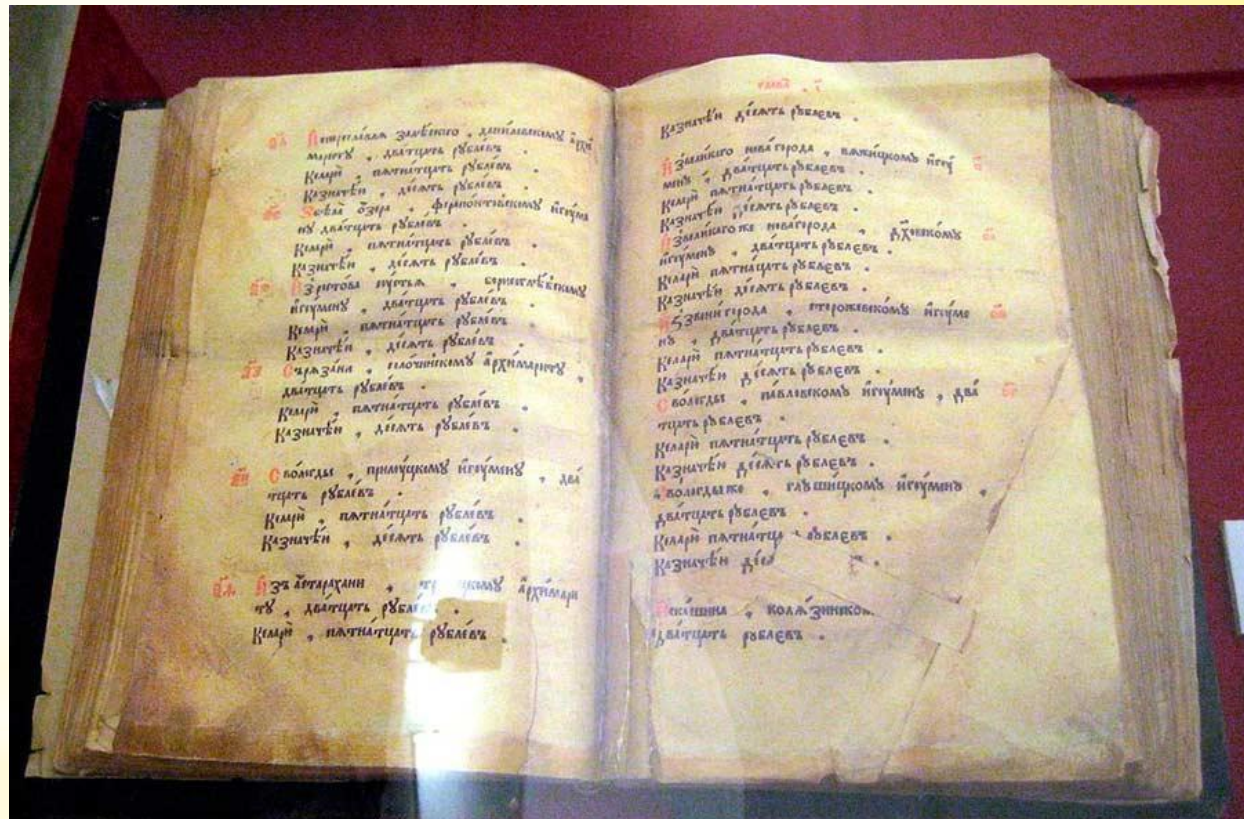 Ѿпереславля залѣскаго , даниловскому архи
мариту , два́тцать рꙋбле́въ .
Келарю̀ , пѧтна́тцать рꙋбле́въ .
Казначѣ́ю , де́сѧть рꙋбле́въ .
Збѣла ѻ҆́зера , ферапонтовскому и҆гꙋмѣ
нꙋ два́тцать рꙋбле́въ .
Келарю̀ , пѧтна́тцать рꙋбле́въ .
Казначѣ́ю , де́сѧть рꙋбле́въ .
И҆зꙋстьѧ , борисоглѣ́бскому
и҆гꙋ́мену , два́тцать рꙋбле́въ .
Келарю̀ , пѧтна́тцать рꙋбле́въ .
Казначѣ́ю , де́сѧть рꙋбле́въ .
Сърѧза́на , солочи́нскому а҆рхимариту ,
два́тцать рꙋбле́въ .
Келарю̀ , пѧтна́тцать рꙋбле́въ .
Казначѣ́ю , де́сѧть рꙋбле́въ .
Сво́логды , прилꙋ́цкому и҆гꙋ́менꙋ , два́
тцать рꙋбле́въ .
Келарю̀ , пѧтна́тцать рꙋбле́въ .
Казначѣ́ю , де́сѧть рꙋбле́въ .
И҆зъ а҆старахани , а҆рхимари
ту , два́тцать рꙋбле́въ .
Келарю̀ , пѧтна́тцать рꙋбле́въ .
глава̀
Казначѣ́ю де́сѧть рꙋбле́въ .
И҆звели́каго нова́города , вѧжи́цкомꙋ и҆гꙋ́
менꙋ , два́тцать рꙋбле́въ .
Келарю̀ пѧтна́тцать рꙋбле́въ .
Казначѣ́ю де́сѧть рꙋбле́въ .
И҆звели́каго же нова́города , дꙋ́ховскомꙋ
и҆гꙋ́менꙋ , два́тцать рꙋбле́въ .
Келарю̀ пѧтна́тцать рꙋбле́въ .
Казначѣ́ю де́сѧть рꙋбле́въ .
И҆ззвени́города , сторожевско́мꙋ и҆гꙋ́ме
нꙋ , два́тцать рꙋбле́въ .
Келарю̀ пѧтна́тцать рꙋбле́въ .
Казначѣ́ю де́сѧть рꙋбле́въ .
Сво́логды , па́вловскомꙋ и҆гꙋ́менꙋ , два́
тцать рꙋбле́въ .
Келарю̀ пѧтна́тцать рꙋбле́въ .
Казначѣ́ю де́сѧть рꙋбле́въ .
Сво́логды же , глꙋши́цкомꙋ и҆гꙋ́менꙋ ,
два́тцать рꙋбле́въ .
Келарю̀ пѧтна́тца рꙋбле́въ .
Казначѣ́ю
И҆скашина , колѧ́зинско
два́тцать рꙋбле́въ .